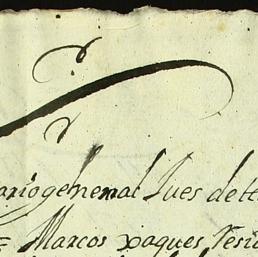 ario general Jues de
= Marcos xaques resi